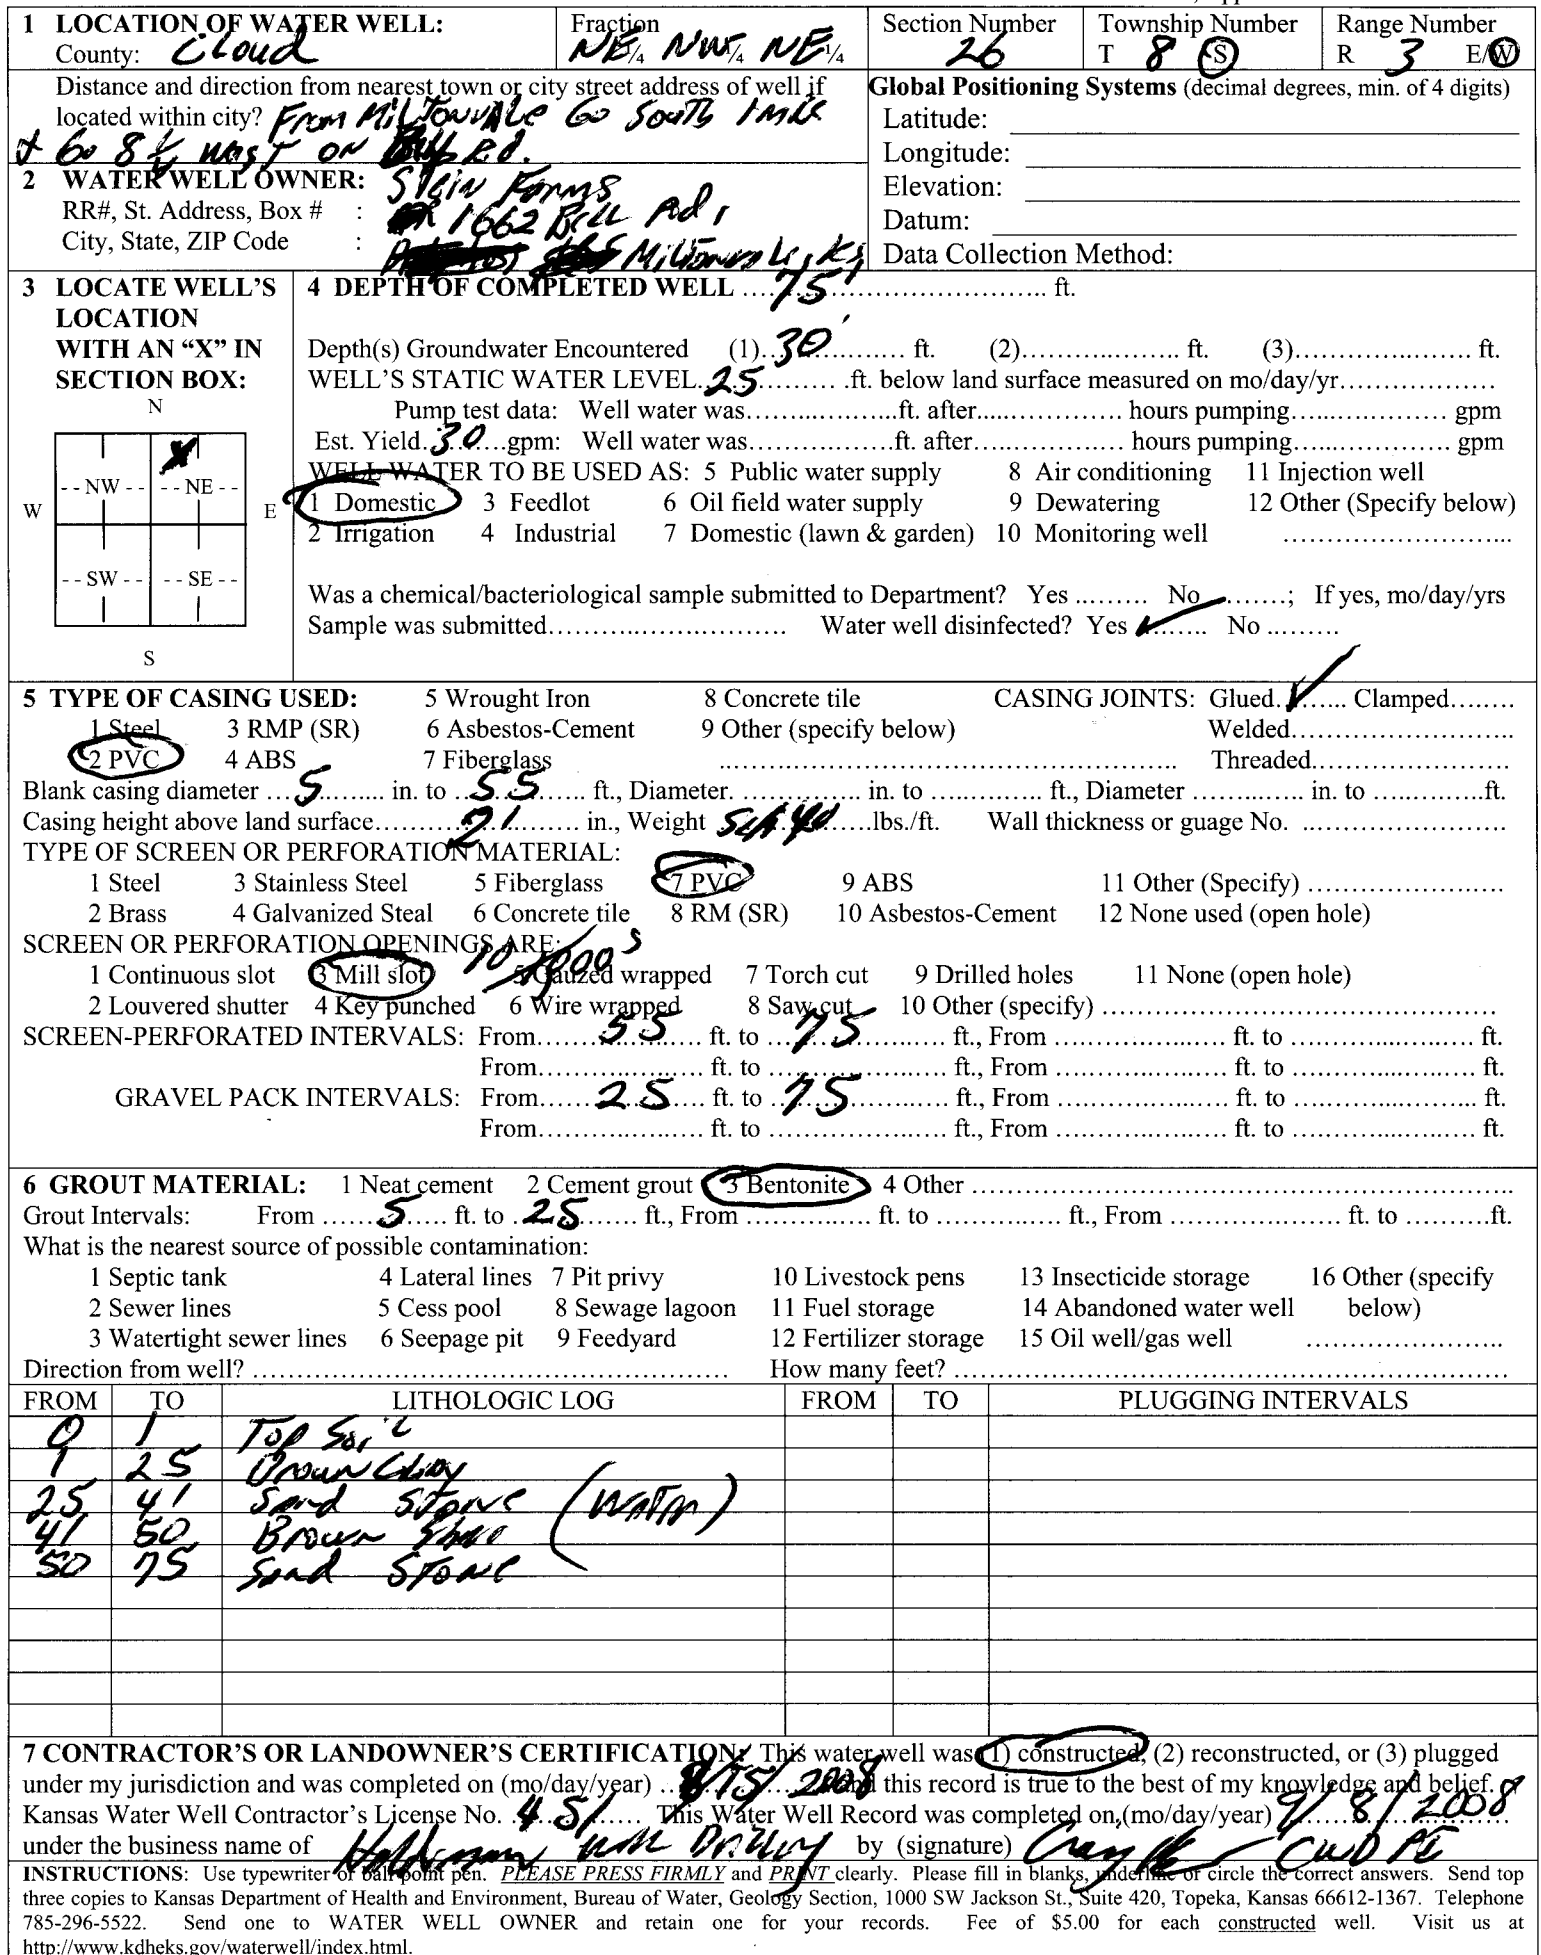 1 LOCATION OF WATER WELL: Fraction Section Number Township Number Range Number
County: Cloud NE ¼ NW ¼ NE ¼ 26 T 8 S R 3 E/W
Distance and direction from nearest town or city street address of well if
located within city? From Miltonvale Go South 1 mile
Global Positioning Systems (decimal degrees, min. of 4 digits)
Latitude:
Longitude:
Elevation:
Datum:
Data Collection Method:
& Go 8 ½ West on Rd.
2 WATER WELL OWNER: Stein Farms
RR#, St. Address, Box # : 1662 Bell Rd,
City, State, ZIP Code : Miltonvale, Ks,
3 LOCATE WELL'S
LOCATION
WITH AN “X” IN
SECTION BOX:
N
X
- - NW - - - - NE - -
W E
- - SW - - - - SE - -
S
4 DEPTH OF COMPLETED WELL ....75'........ ft.
Depth(s) Groundwater Encountered (1)..30'........ ft. (2)............... ft. (3)............... ft.
WELL'S STATIC WATER LEVEL..25......... .ft. below land surface measured on mo/day/yr...............
Pump test data: Well water was...............ft. after............... hours pumping............... gpm
Est. Yield..30....gpm: Well water was...............ft. after............... hours pumping............... gpm
WELL WATER TO BE USED AS: 5 Public water supply 8 Air conditioning 11 Injection well
1 Domestic 3 Feedlot 6 Oil field water supply 9 Dewatering 12 Other (Specify below)
2 Irrigation 4 Industrial 7 Domestic (lawn & garden) 10 Monitoring well ...............
Was a chemical/bacteriological sample submitted to Department? Yes ......... No ........; If yes, mo/day/yrs
Sample was submitted............... Water well disinfected? Yes ✓....... No .........
5 TYPE OF CASING USED: 5 Wrought Iron 8 Concrete tile CASING JOINTS: Glued..✓..... Clamped........
1 Steel 3 RMP (SR) 6 Asbestos-Cement 9 Other (specify below) Welded...............
2 PVC 4 ABS 7 Fiberglass ............... Threaded...............
Blank casing diameter ...5........ in. to ..55...... ft., Diameter............... in. to ............... ft., Diameter ............... in. to ...............ft.
Casing height above land surface............21........ in., Weight Sch 40......lbs./ft. Wall thickness or guage No. ...............
TYPE OF SCREEN OR PERFORATION MATERIAL:
1 Steel 3 Stainless Steel 5 Fiberglass 7 PVC 9 ABS 11 Other (Specify) ...............
2 Brass 4 Galvanized Steal 6 Concrete tile 8 RM (SR) 10 Asbestos-Cement 12 None used (open hole)
SCREEN OR PERFORATION OPENINGS ARE: 10/1000's
1 Continuous slot 3 Mill slot 5 Gauzed wrapped 7 Torch cut 9 Drilled holes 11 None (open hole)
2 Louvered shutter 4 Key punched 6 Wire wrapped 8 Saw cut 10 Other (specify) ...............
SCREEN-PERFORATED INTERVALS: From.......55...... ft. to ...75........ ft., From ............... ft. to ............... ft.
From............... ft. to ............... ft., From ............... ft. to ............... ft.
GRAVEL PACK INTERVALS: From.......25...... ft. to ..75........ ft., From ............... ft. to ............... ft.
From............... ft. to ............... ft., From ............... ft. to ............... ft.
6 GROUT MATERIAL: 1 Neat cement 2 Cement grout 3 Bentonite 4 Other ...............
Grout Intervals: From ......5..... ft. to ..25....... ft., From ............... ft. to ............... ft., From ............... ft. to .........ft.
What is the nearest source of possible contamination:
1 Septic tank 4 Lateral lines 7 Pit privy 10 Livestock pens 13 Insecticide storage 16 Other (specify
2 Sewer lines 5 Cess pool 8 Sewage lagoon 11 Fuel storage 14 Abandoned water well below)
3 Watertight sewer lines 6 Seepage pit 9 Feedyard 12 Fertilizer storage 15 Oil well/gas well ...............
Direction from well? ............... How many feet? ...............
FROM TO LITHOLOGIC LOG FROM TO PLUGGING INTERVALS
0 1 Top Soil
1 25 Brown Clay
25 41 Sand Stone (Water)
41 50 Brown Shale
50 75 Sand Stone
7 CONTRACTOR'S OR LANDOWNER'S CERTIFICATION: This water well was (1) constructed, (2) reconstructed, or (3) plugged
under my jurisdiction and was completed on (mo/day/year) ..8/15/2008 and this record is true to the best of my knowledge and belief.
Kansas Water Well Contractor's License No. ..451...... This Water Well Record was completed on (mo/day/year) 9/8/2008
under the business name of Well Drilling by (signature) CWD PI
INSTRUCTIONS: Use typewriter or ball point pen. PLEASE PRESS FIRMLY and PRINT clearly. Please fill in blanks, underline or circle the correct answers. Send top
three copies to Kansas Department of Health and Environment, Bureau of Water, Geology Section, 1000 SW Jackson St., Suite 420, Topeka, Kansas 66612-1367. Telephone
785-296-5522. Send one to WATER WELL OWNER and retain one for your records. Fee of $5.00 for each constructed well. Visit us at
http://www.kdheks.gov/waterwell/index.html.